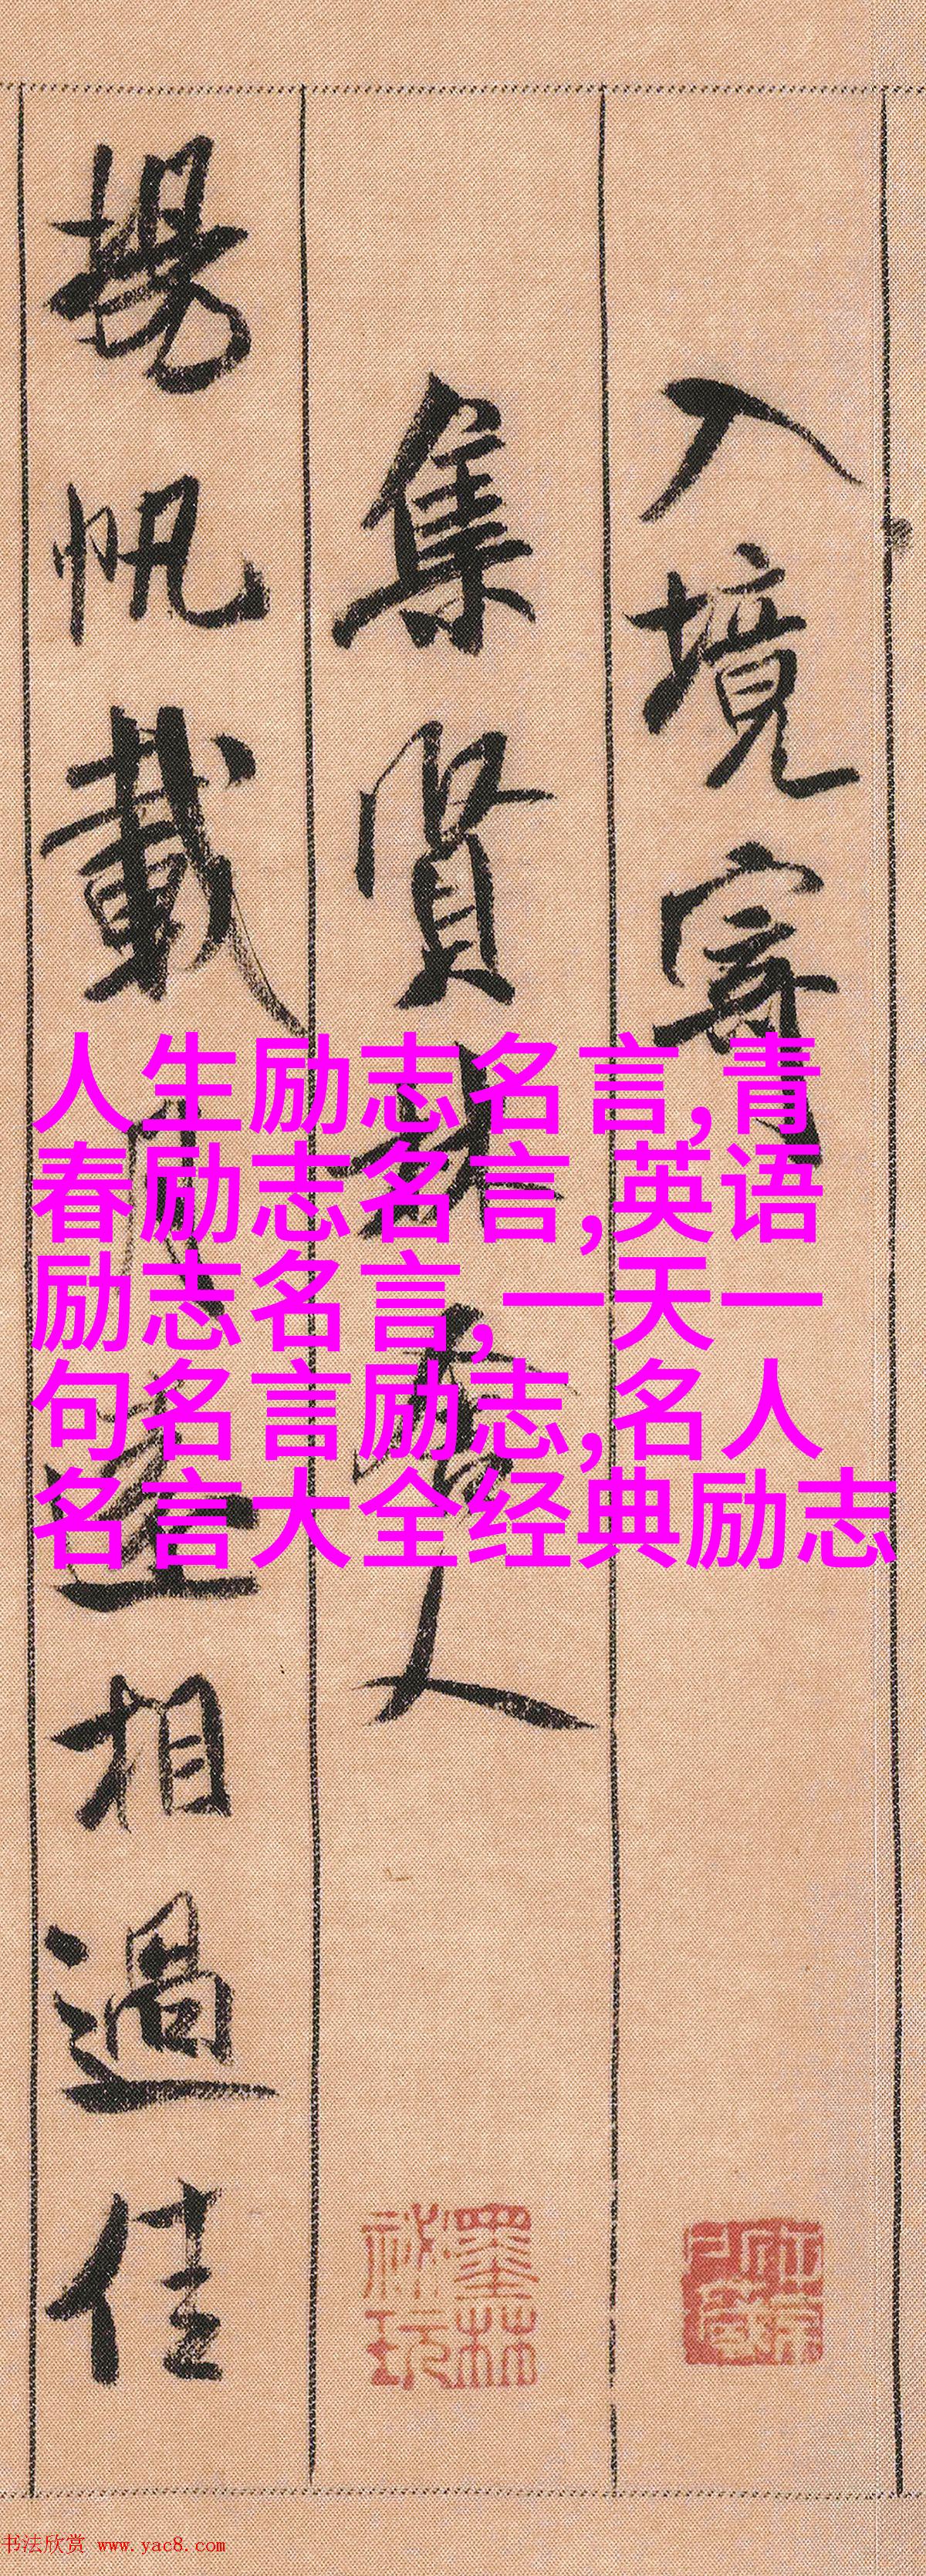 入境寄
集賢林舍人
揚帆載月遠相過佳
人生励志名言,青
春励志名言,英语
励志名言,一天一
句名言励志,名人
名言大全经典励志
墨林
祕玩
书法欣赏 www.yac8.com